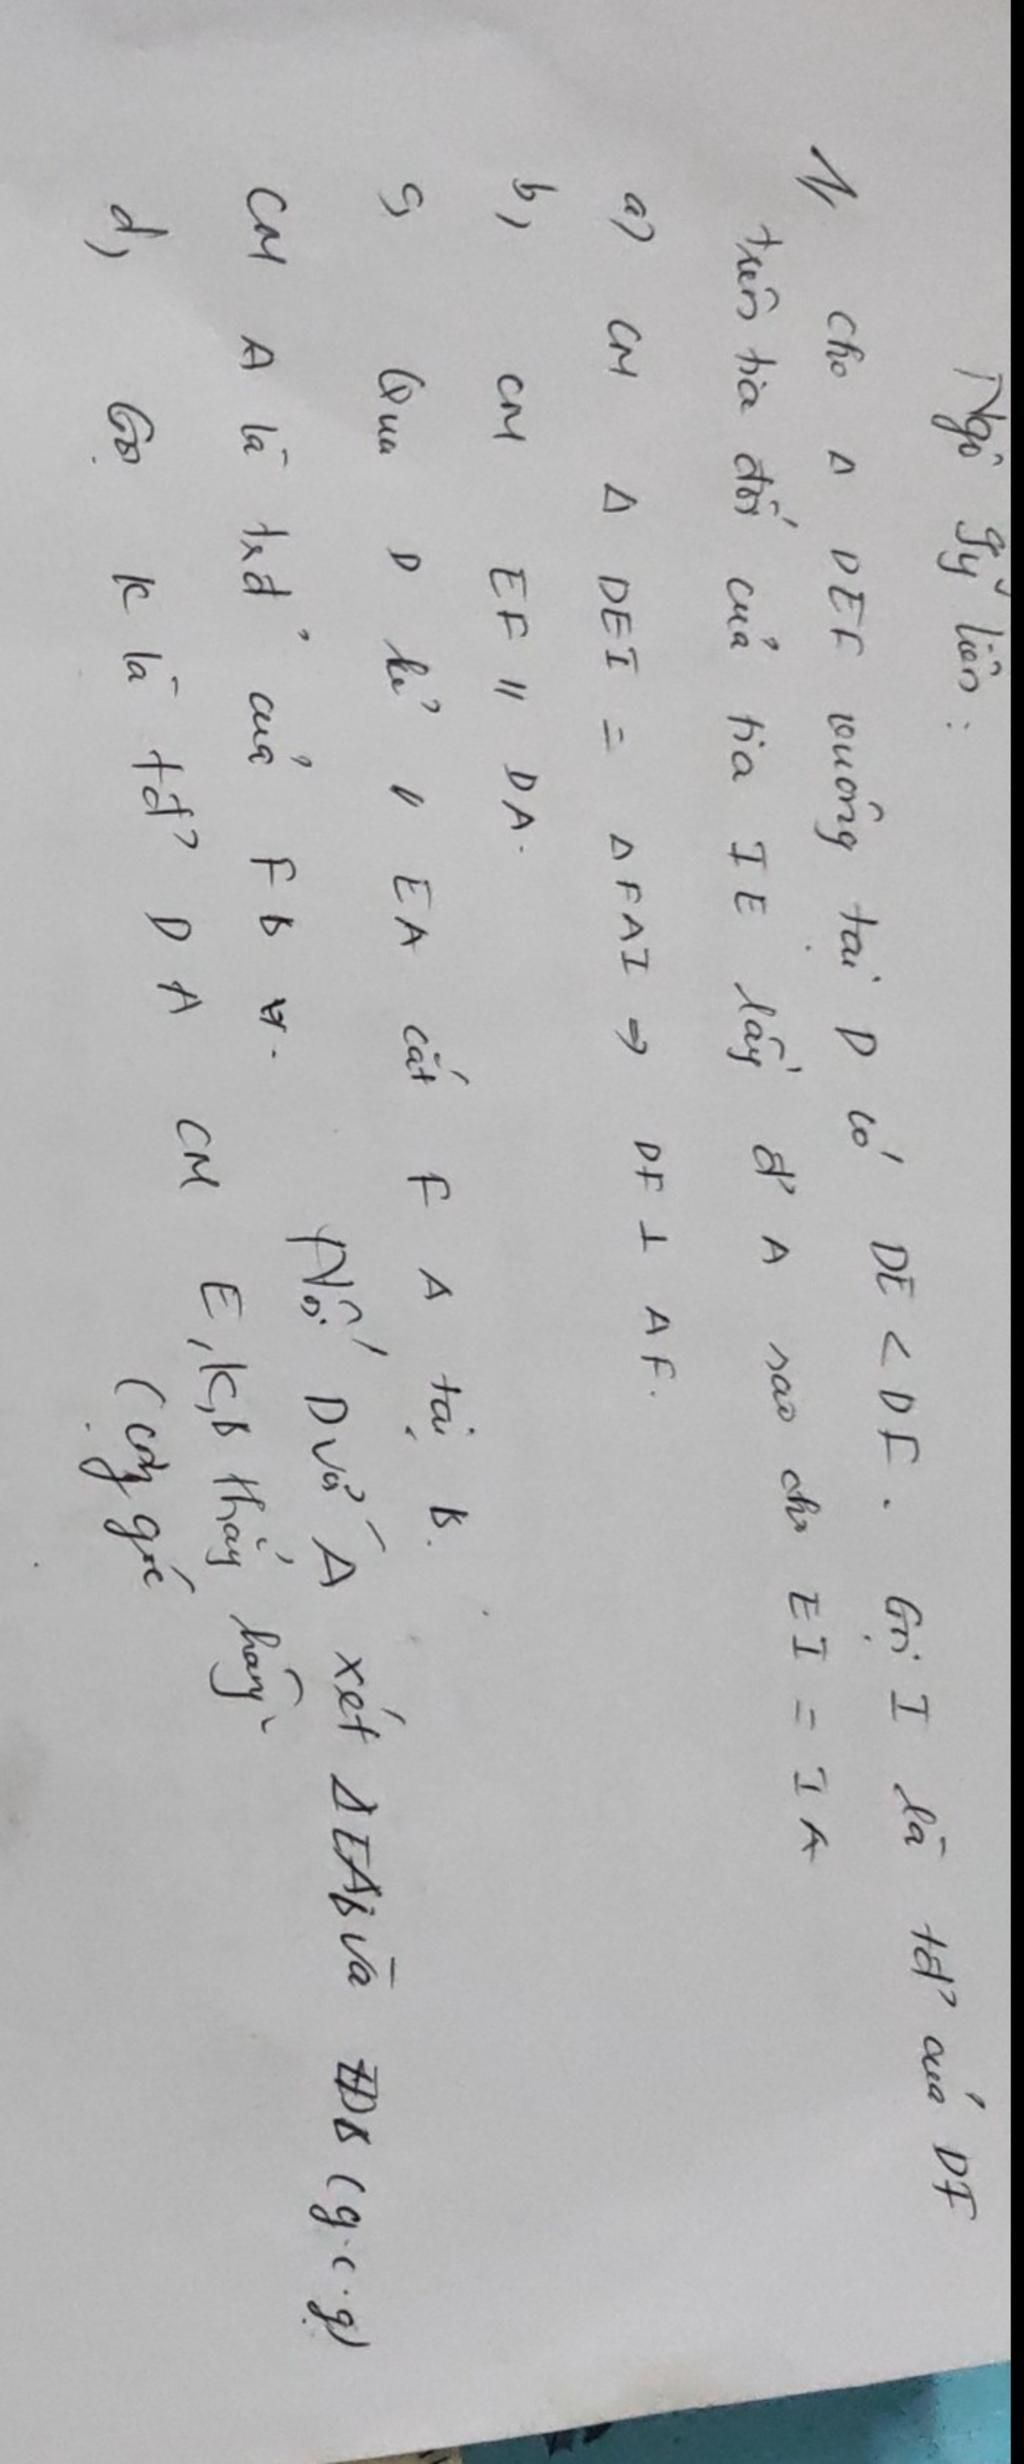 Ngô gy liên :
1, Cho Δ DEF vuông tại D có DE < DF . Gọi I là tđ' của DF
trên tia đối của tia IE lấy đ' A sao cho EI = IA
a) CM Δ DEI = ΔFAI ⇒ DF ⊥ AF.
b, CM EF // DA.
c, Qua D kẻ // EA cắt F A tại B.
CM A là tđ' của F B
Nối D với A xét ΔEAB và DB (g.c.g)
d, Gọi K là tđ' D A CM E, K, B thẳng hàng
( cộng góc